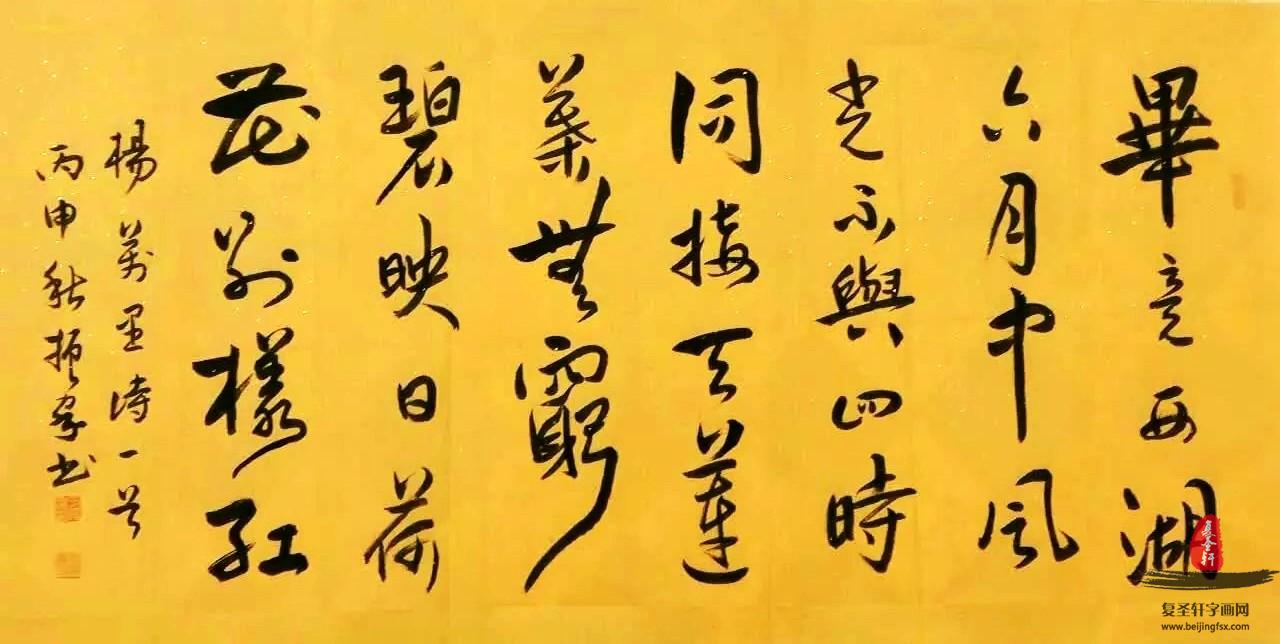 畢竟西湖
六月中風
光不與四時
同接天蓮
葉無窮
碧映日荷
花別樣紅
楊萬里詩一首
丙申秋振書
复圣轩
复圣轩字画网
www.beijingfsx.com